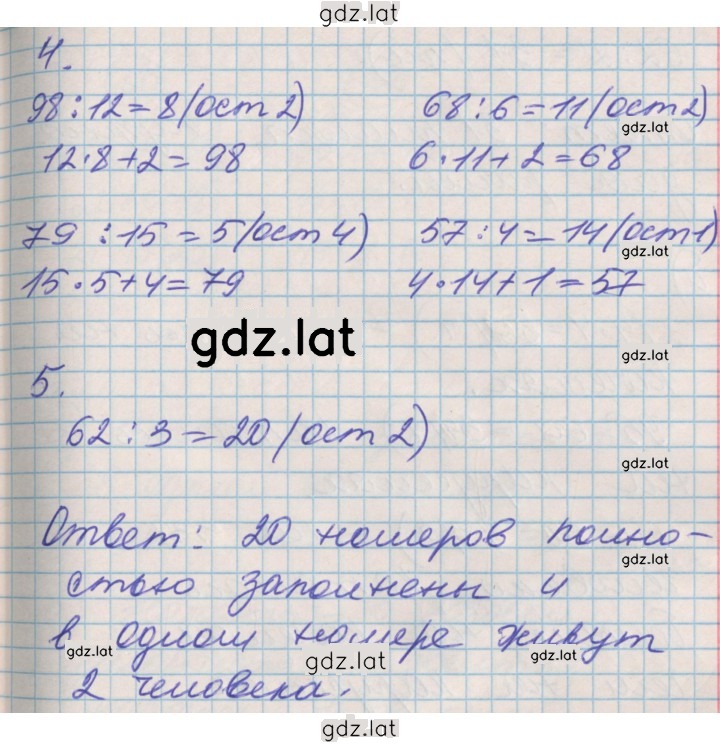 gdz.lat
4.
98:12=8(ост 2) 68:6=11(ост 2)
gdz.lat
12·8+2=98 6·11+2=68
79:15=5(ост 4) 57:4=14(ост 1)
gdz.lat
15·5+4=79 4·14+1=57
gdz.lat
gdz.lat
5.
62:3=20(ост 2)
gdz.lat
Ответ: 20 номеров полно-
gdz.lat
стью заполнены и
в одном номере живут
gdz.lat gdz.lat gdz.lat
2 человека.
gdz.lat